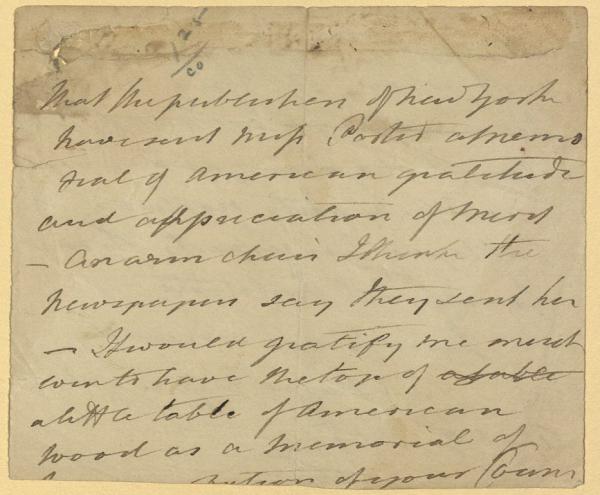 125
/co
that the publishers of New York
have sent Miss Porter a memo
rial of American gratitude
and appreciation of merit
– an arm chair I think the
newspapers say they sent her
– It would gratify me much
were to have the top of a table
a little table of American
wood as a memorial of
of your Coun